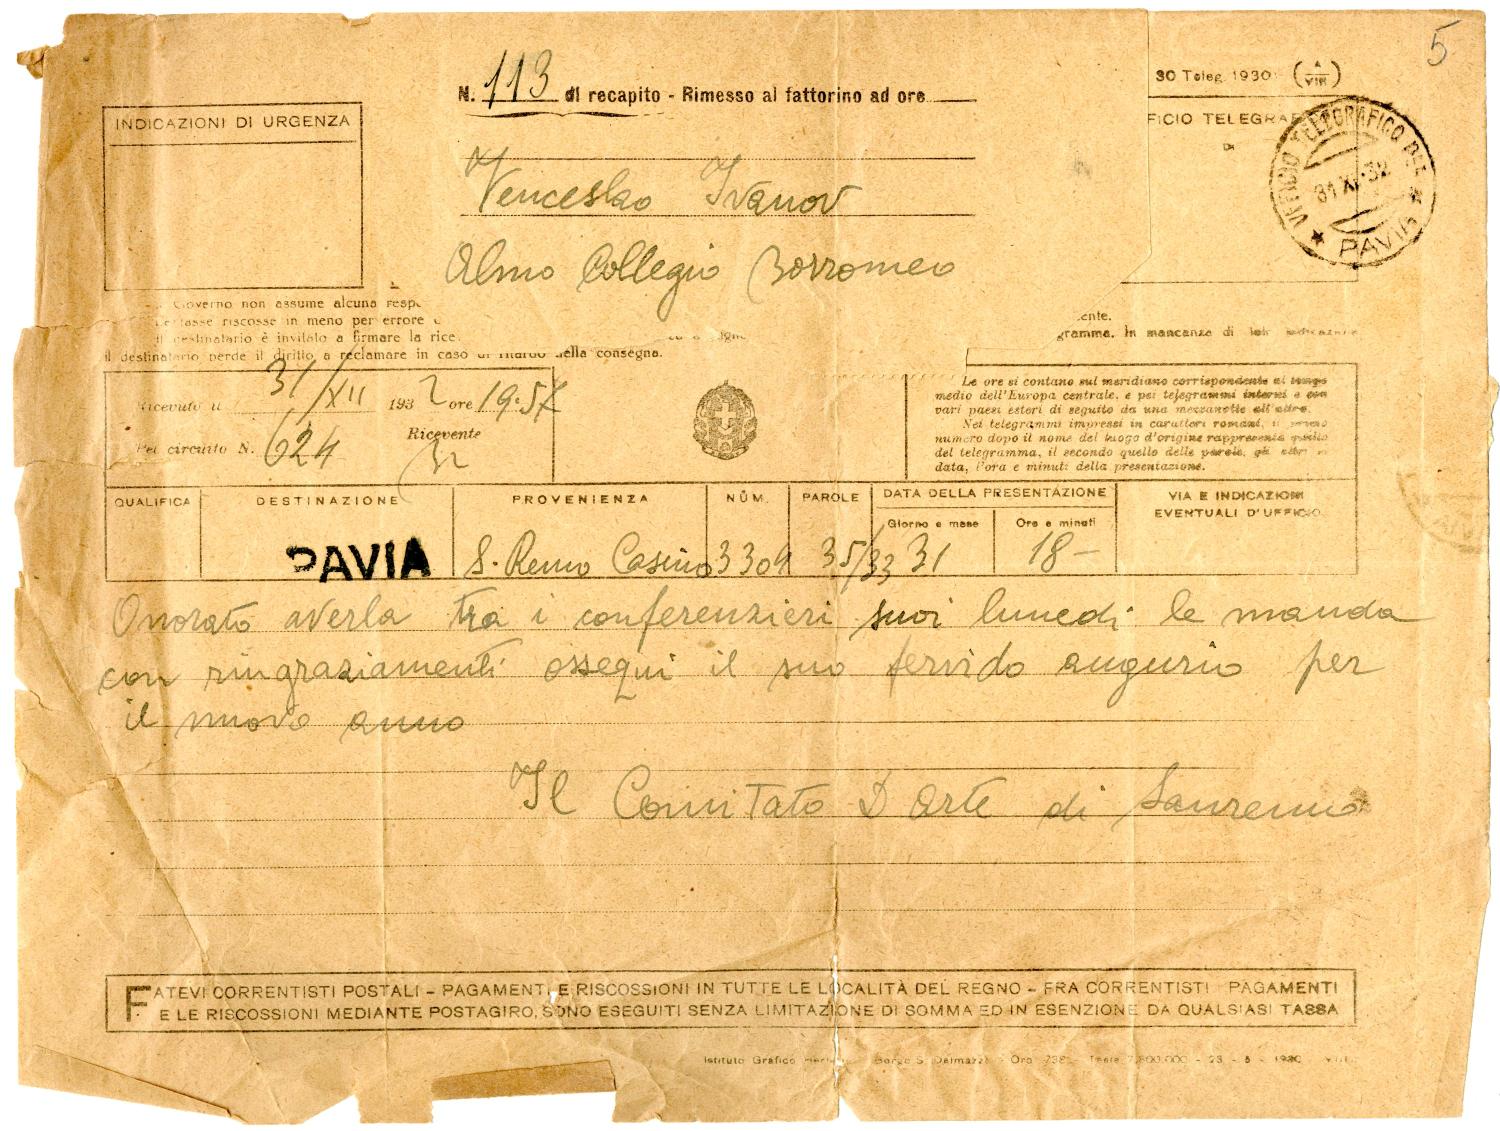 5
N. 113 di recapito - Rimesso al fattorino ad ore
30 Teleg. 1930 (A VIII)
INDICAZIONI DI URGENZA
FICIO TELEGRAF
DI
UFFICIO TELEGRAFICO DEL
31 XII 32
PAVIA
Venceslao Ivanov
Almo Collegio Borromeo
Governo non assume alcuna resp
tasse riscosse in meno per errore
il destinatario è invitato a firmare la rice
gramma. In mancanza di tale indicazione
il destinatario perde il diritto a reclamare in caso di ritardo nella consegna.
Ricevuto il 31/XII 1932 ore 19.57
Pel circuito N. 624 Ricevente
Le ore si contano sul meridiano corrispondente al tempo
medio dell'Europa centrale, e pei telegrammi interni e con
vari paesi esteri di seguito da una mezzanotte all'altra.
Nei telegrammi impressi in caratteri romani, il primo
numero dopo il nome del luogo d'origine rappresenta quello
del telegramma, il secondo quello delle parole, gli altri la
data, l'ora e minuti della presentazione.
QUALIFICA DESTINAZIONE PROVENIENZA NÙM. PAROLE DATA DELLA PRESENTAZIONE VIA E INDICAZIONI
EVENTUALI D'UFFICIO
Giorno e mese Ore e minuti
PAVIA S. Remo Casino 3309 35/33 31 18-
Onorato averla tra i conferenzieri suoi lunedi le manda
con ringraziamenti ossequi il suo fervido augurio per
il nuovo anno
Il Comitato D Arte di Sanremo
FATEVI CORRENTISTI POSTALI - PAGAMENTI E RISCOSSIONI IN TUTTE LE LOCALITÀ DEL REGNO - FRA CORRENTISTI PAGAMENTI
E LE RISCOSSIONI MEDIANTE POSTAGIRO, SONO ESEGUITI SENZA LIMITAZIONE DI SOMMA ED IN ESENZIONE DA QUALSIASI TASSA
Istituto Grafico Borgo S. Dalmazzo Ord. 738 - 7.800.000 - 23 - 5 - 1930